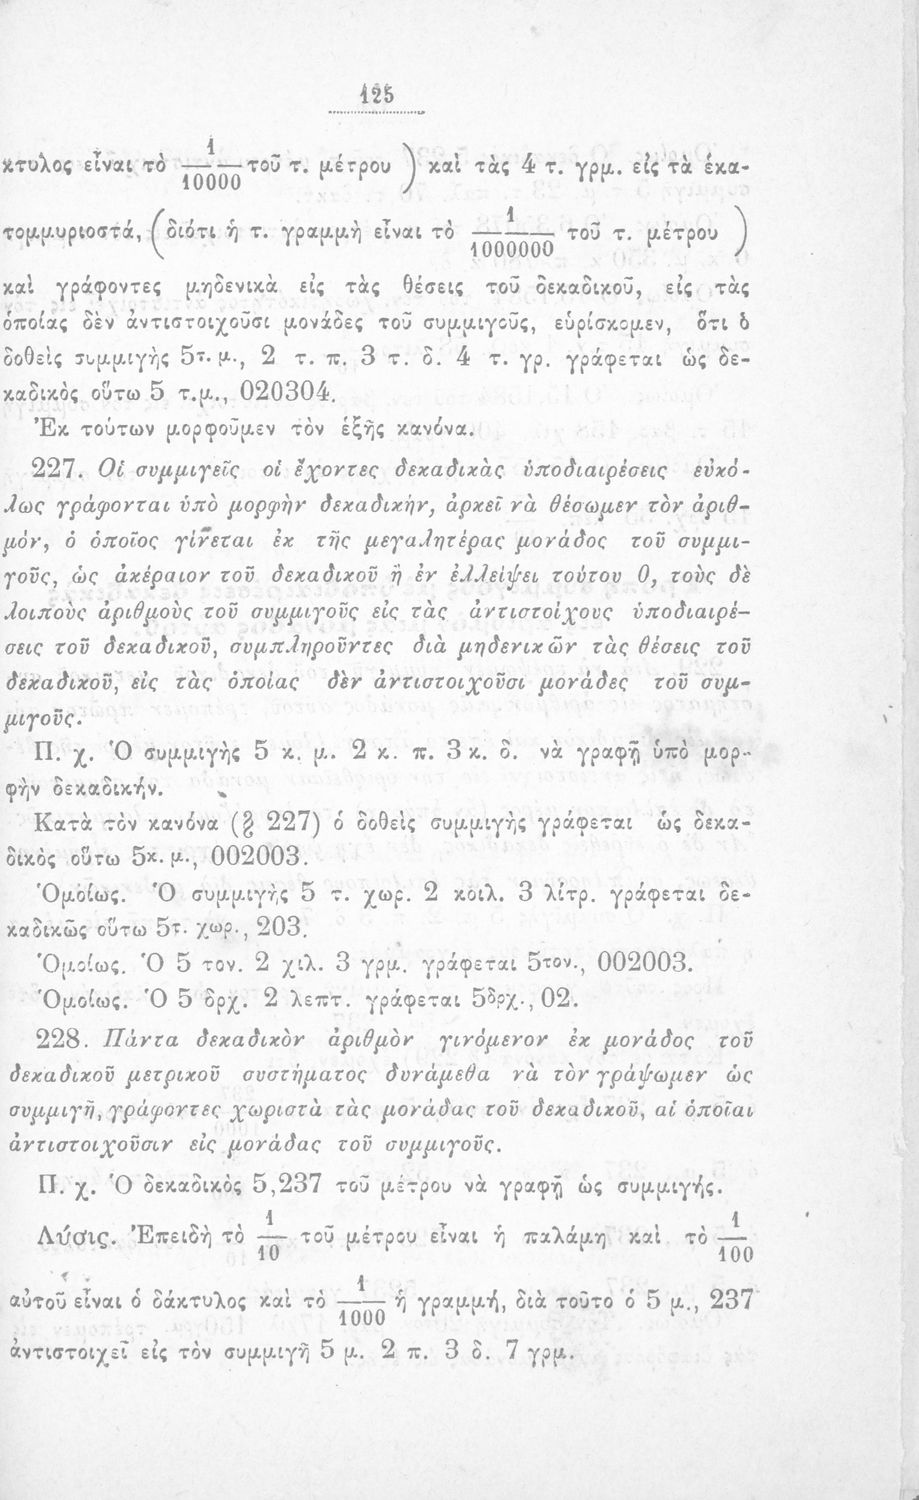 125
κτυλος εἶναι τὸ 1/10000 τοῦ τ. μέτρου ) καὶ τὰς 4 τ. γρμ. εἰς τὰ ἑκα-
τομμυριοστά, ( διότι ἡ τ. γραμμὴ εἶναι τὸ 1/1000000 τοῦ τ. μέτρου )
καὶ γράφοντες μηδενικὰ εἰς τὰς θέσεις τοῦ δεκαδικοῦ, εἰς τὰς
ὁποίας δὲν ἀντιστοιχοῦσι μονάδες τοῦ συμμιγοῦς, εὑρίσκομεν, ὅτι ὁ
δοθεὶς συμμιγὴς 5τ. μ., 2 τ. π. 3 τ. δ. 4 τ. γρ. γράφεται ὡς δε-
καδικὸς οὕτω 5 τ.μ., 020304.
Ἐκ τούτων μορφοῦμεν τὸν ἑξῆς κανόνα.
227. Οἱ συμμιγεῖς οἱ ἔχοντες δεκαδικὰς ὑποδιαιρέσεις εὐκό-
λως γράφονται ὑπὸ μορφὴν δεκαδικήν, ἀρκεῖ νὰ θέσωμεν τὸν ἀριθ-
μόν, ὁ ὁποῖος γίνεται ἐκ τῆς μεγαλητέρας μονάδος τοῦ συμμι-
γοῦς, ὡς ἀκέραιον τοῦ δεκαδικοῦ ἢ ἐν ἐλλείψει τούτου 0, τοὺς δὲ
λοιποὺς ἀριθμοὺς τοῦ συμμιγοῦς εἰς τὰς ἀντιστοίχους ὑποδιαιρέ-
σεις τοῦ δεκαδικοῦ, συμπληροῦντες διὰ μηδενικῶν τὰς θέσεις τοῦ
δεκαδικοῦ, εἰς τὰς ὁποίας δὲν ἀντιστοιχοῦσι μονάδες τοῦ συμ-
μιγοῦς.
Π. χ. Ὁ συμμιγὴς 5 κ. μ.. 2 κ. π. 3 κ. δ. νὰ γραφῇ ὑπὸ μορ-
φὴν δεκαδικήν.
Κατὰ τὸν κανόνα (§ 227) ὁ δοθεὶς συμμιγὴς γράφεται ὡς δεκα-
δικὸς οὕτω 5κ. μ., 002003.
Ὁμοίως. Ὁ συμμιγὴς 5 τ. χωρ. 2 κοιλ. 3 λίτρ. γράφεται δε-
καδικῶς οὕτω 5τ. χωρ., 203.
Ὁμοίως. Ὁ 5 τον. 2 χιλ. 3 γρμ. γράφεται 5τον., 002003.
Ὁμοίως. Ὁ 5 δρχ. 2 λεπτ. γράφεται 5δρχ., 02.
228. Πάντα δεκαδικὸν ἀριθμὸν γινόμενον ἐκ μονάδος τοῦ
δεκαδικοῦ μετρικοῦ συστήματος δυνάμεθα νὰ τὸν γράψωμεν ὡς
συμμιγῆ, γράφοντες χωριστὰ τὰς μονάδας τοῦ δεκαδικοῦ, αἱ ὁποῖαι
ἀντιστοιχοῦσιν εἰς μονάδας τοῦ συμμιγοῦς.
Π. χ. Ὁ δεκαδικὸς 5,237 τοῦ μέτρου νὰ γραφῇ ὡς συμμιγής.
Λύσις. Ἐπειδὴ τὸ 1/10 τοῦ μέτρου εἶναι ἡ παλάμη καὶ τὸ 1/100
αὐτοῦ εἶναι ὁ δάκτυλος καὶ τὸ 1/1000 ἡ γραμμή, διὰ τοῦτο ὁ 5 μ., 237
ἀντιστοιχεῖ εἰς τὸν συμμιγῆ 5 μ. 2 π. 3 δ. 7 γρμ.